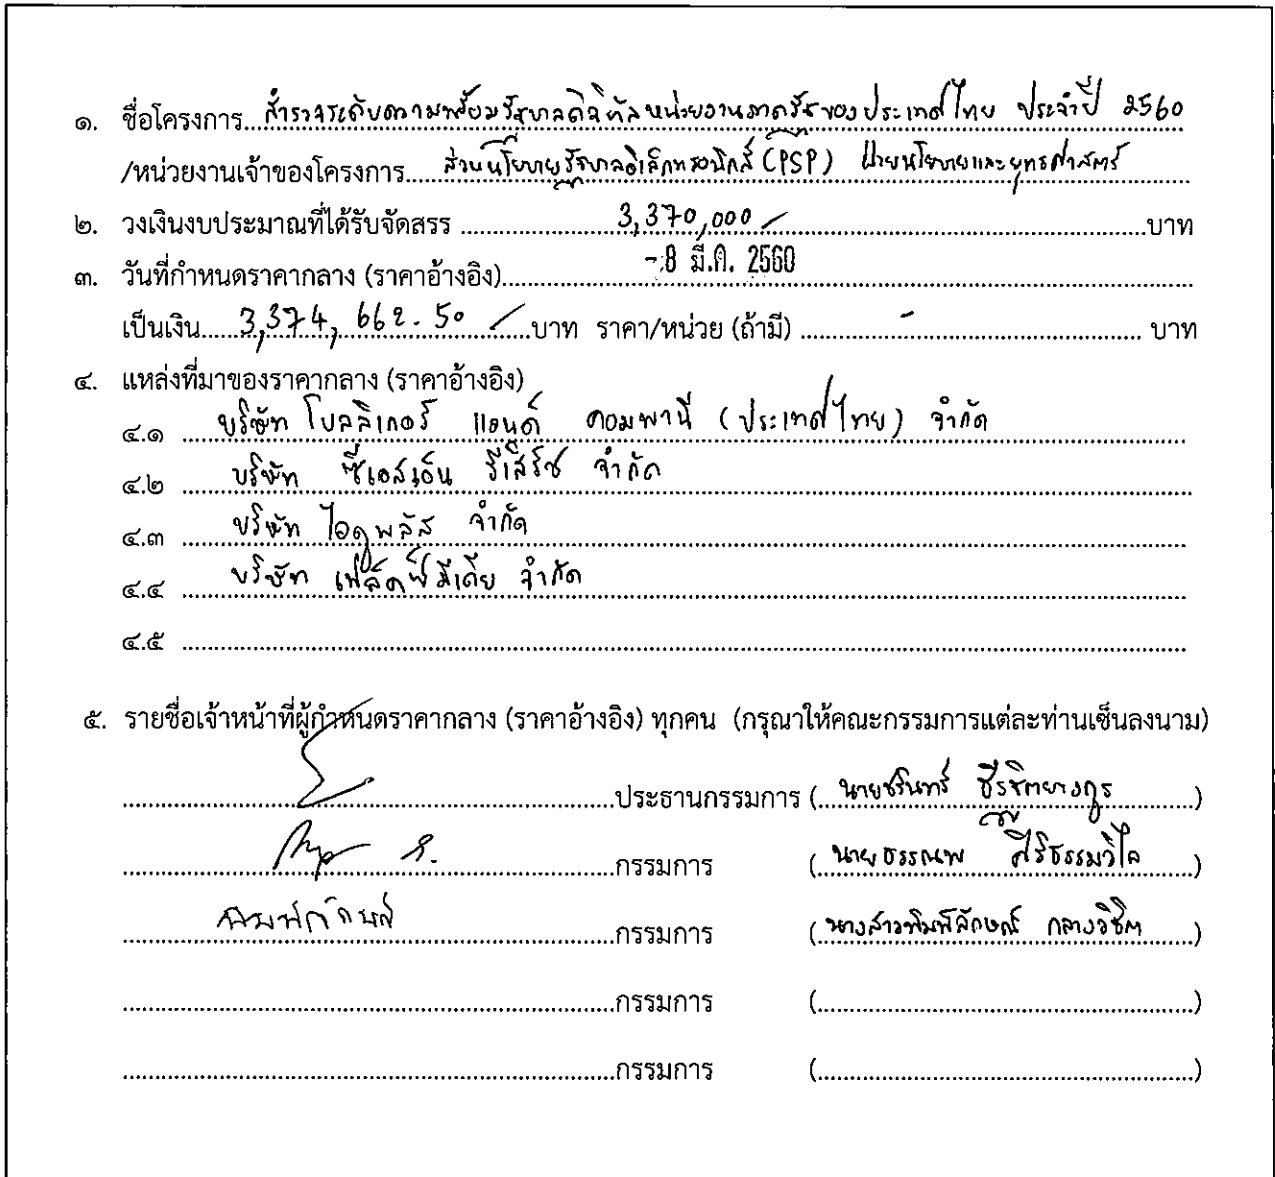 ๑. ชื่อโครงการ...สำรวจระดับความพร้อมรัฐบาลดิจิทัลหน่วยงานภาครัฐของประเทศไทย ประจำปี 2560
/หน่วยงานเจ้าของโครงการ.....ส่วนนโยบายรัฐบาลอิเล็กทรอนิกส์ (PSP) ฝ่ายนโยบายและยุทธศาสตร์
๒. วงเงินงบประมาณที่ได้รับจัดสรร ........3,370,000........บาท
๓. วันที่กำหนดราคากลาง (ราคาอ้างอิง)........- 8 มี.ค. 2560........
เป็นเงิน.....3,374,662.50.....บาท ราคา/หน่วย (ถ้ามี) ........-........ บาท
๔. แหล่งที่มาของราคากลาง (ราคาอ้างอิง)
๔.๑ บริษัท โบลลิเกอร์ แอนด์ คอมพานี (ประเทศไทย) จำกัด
๔.๒ บริษัท ซีเอสเอ็น รีเสิร์ช จำกัด
๔.๓ บริษัท ไอดูพลัส จำกัด
๔.๔ บริษัท เฟล็ดฟิมีเดีย จำกัด
๔.๕ ........
๕. รายชื่อเจ้าหน้าที่ผู้กำหนดราคากลาง (ราคาอ้างอิง) ทุกคน (กรุณาให้คณะกรรมการแต่ละท่านเซ็นลงนาม)
........ประธานกรรมการ (นายชรินทร์ ธีรฐิตยางกูร)
........กรรมการ (นายธรรณพ ศิริธรรมวิไล)
พิมพ์ลักษณ์ กรรมการ (นางสาวพิมพ์ลักษณ์ กลางวิชิต)
........กรรมการ (........)
........กรรมการ (........)